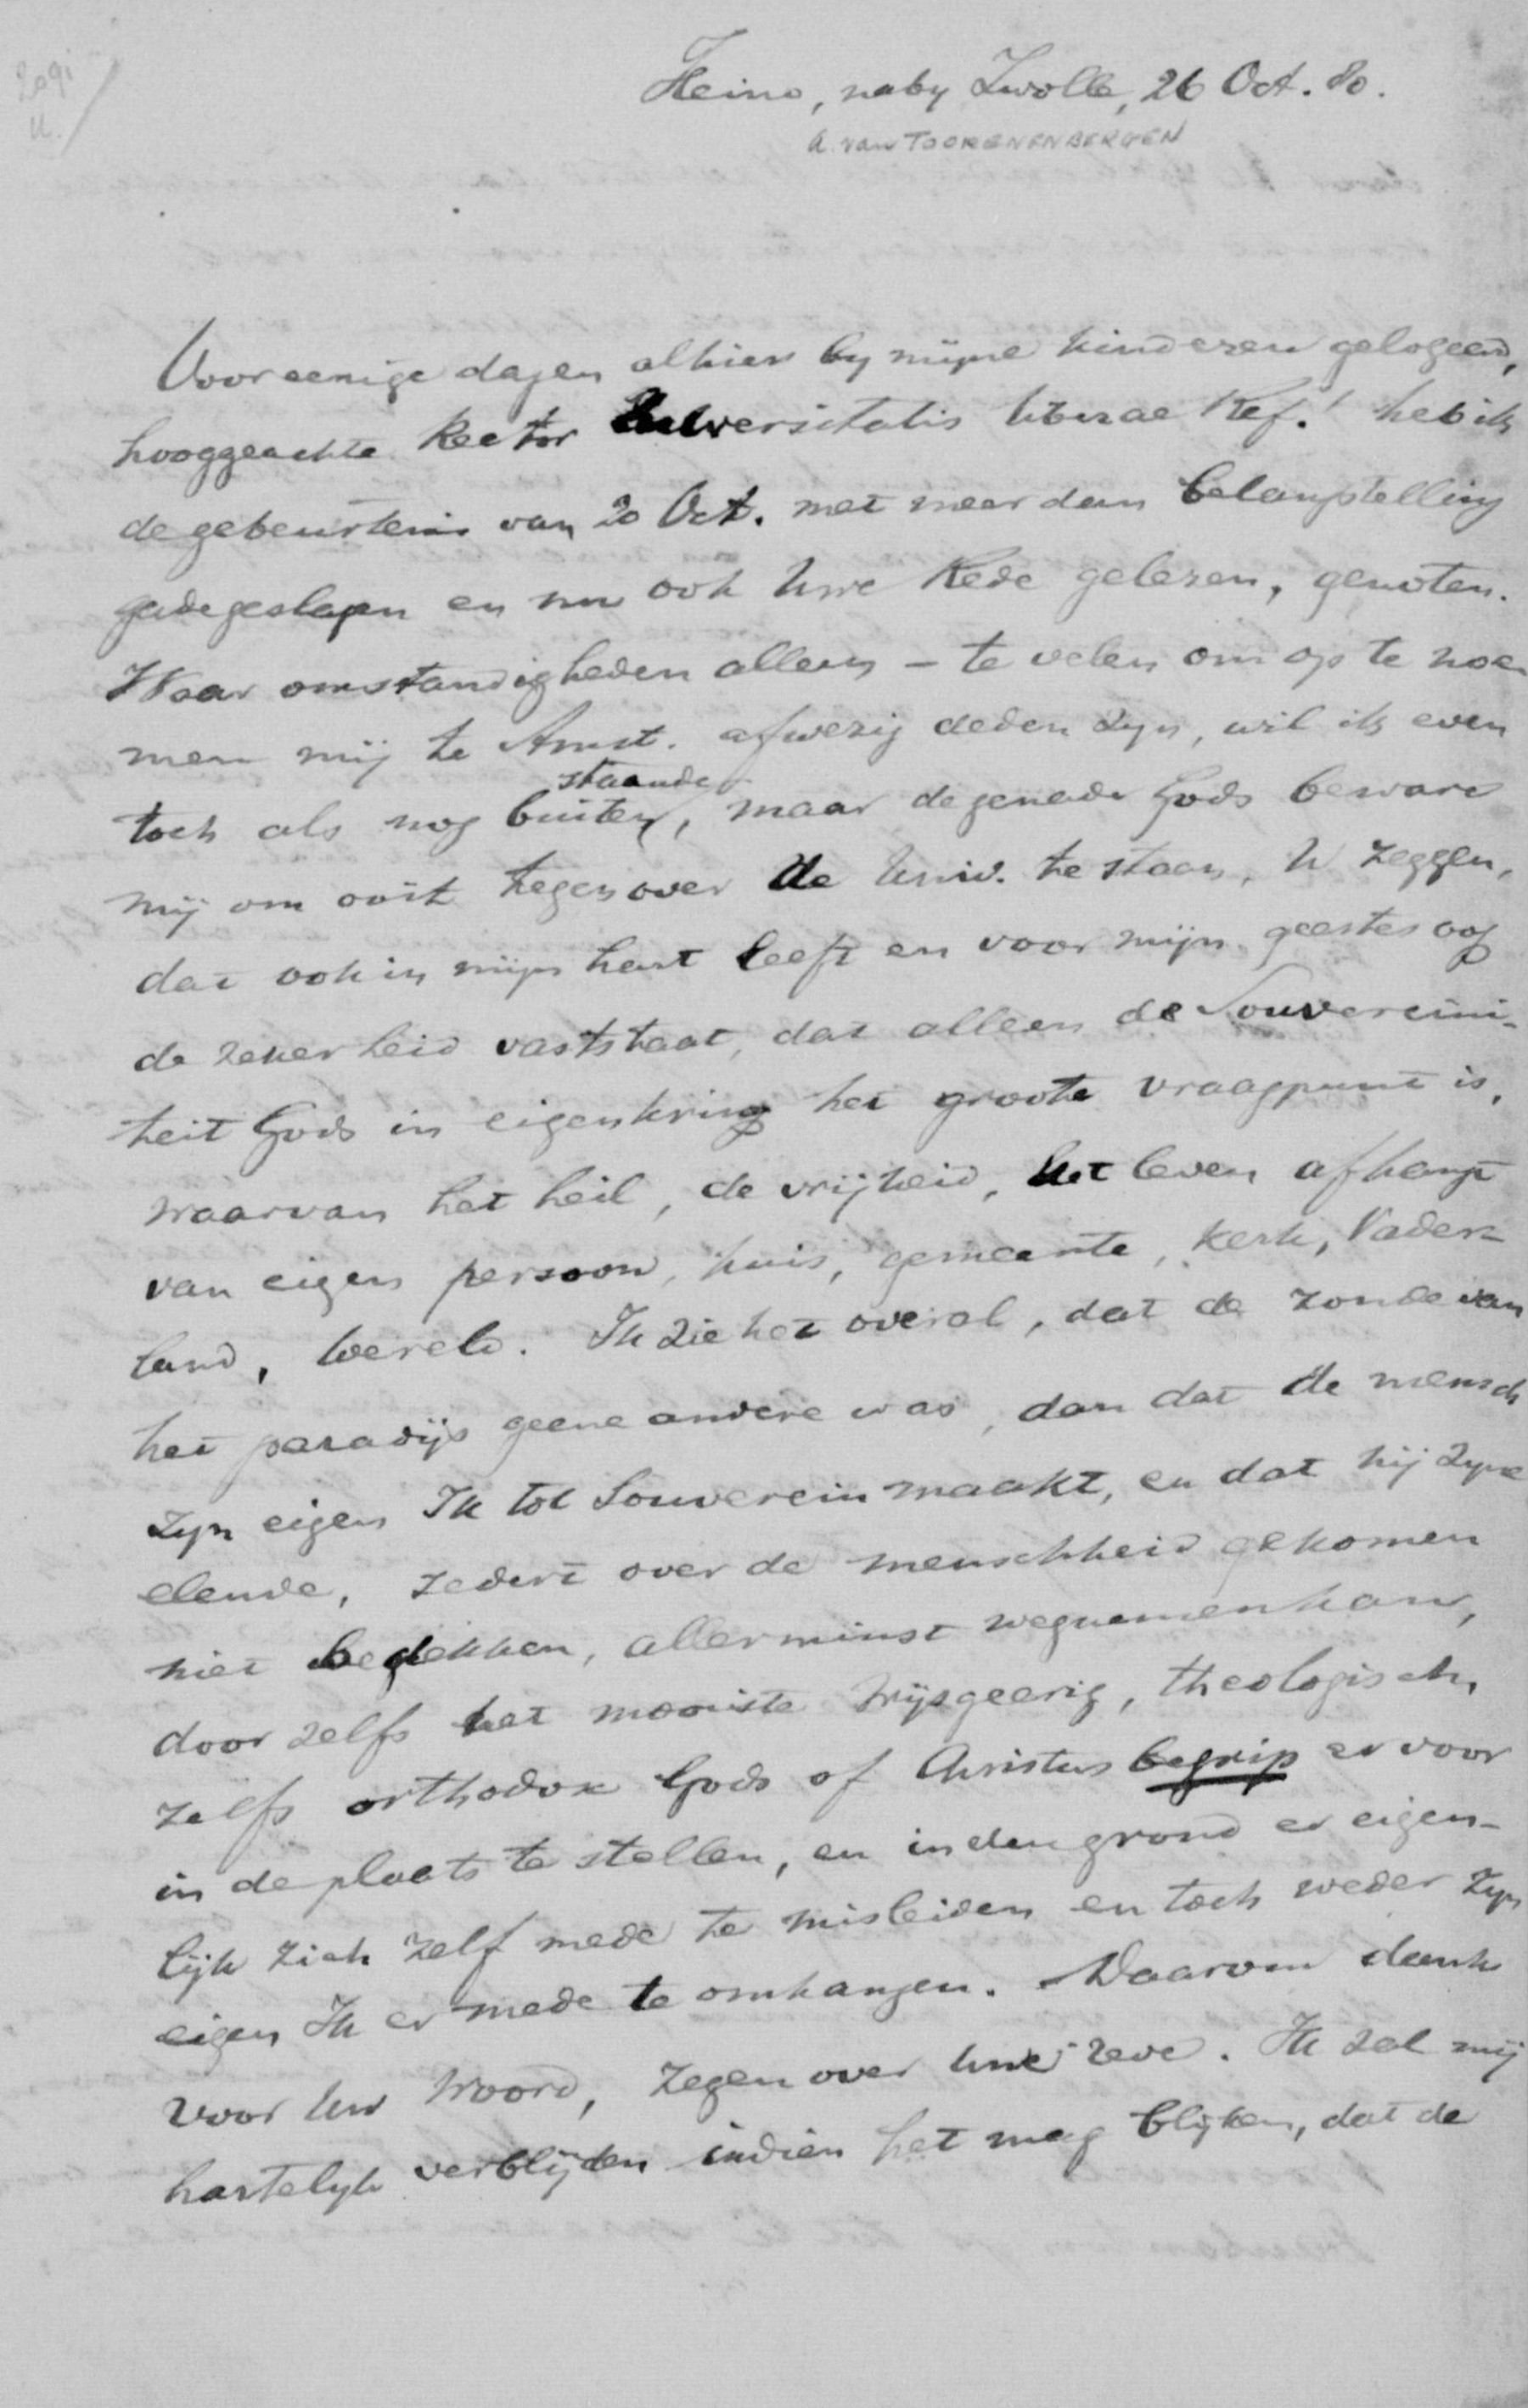 2091
U.
Heino, naby Zwolle, 26 Oct. 80.
A. van TOORENENBERGEN
Voor eenige dagen alhier by mijne kinderen gelogeerd,
hooggeachte Rector Universitatis liberae Ref.! heb ik
de gebeurtenis van 20 Oct. met meer dan belangstelling
gadegeslagen en nu ook Uwe Rede gelezen, genoten.
Waar omstandigheden alleen – te velen om op te noe-
men mij te Amst. afwezig deden zyn, wil ik even
toch als nog buiten staande, maar de genade Gods beware
mij om ooit tegenover de Univ. te staan, U zeggen,
dat ook in mijn hart leeft en voor mijn geestesoog
de zekerheid vaststaat, dat alleen de Souvereini-
teit Gods in eigen kring het groote vraagpunt is,
waarvan het heil, de vrijheid, het leven afhangt
van eigen persoon, huis, gemeente, kerk, Vader-
land, wereld. Ik zie het overal, dat de zonde van
het paradijs geene andere was, dan dat de mensch
zyn eigen Ik tot Souverein maakt, en dat hij zyne
elende, zedert over de menschheid gekomen
niet bedekken, allerminst wegnemen kan,
door zelfs het mooiste wijsgeerig, theologisch,
zelfs orthodox Gods of Christus begrip er voor
in de plaats te stellen, en in den grond er eigen-
lijk zich zelf mede te misleiden en toch weder zyn
eigen Ik er mede te omhangen. Daarom dank
voor Uw woord, zegen over Uwe rede. Ik zal mij
hartelyk verblijden indien het mag blijken, dat de